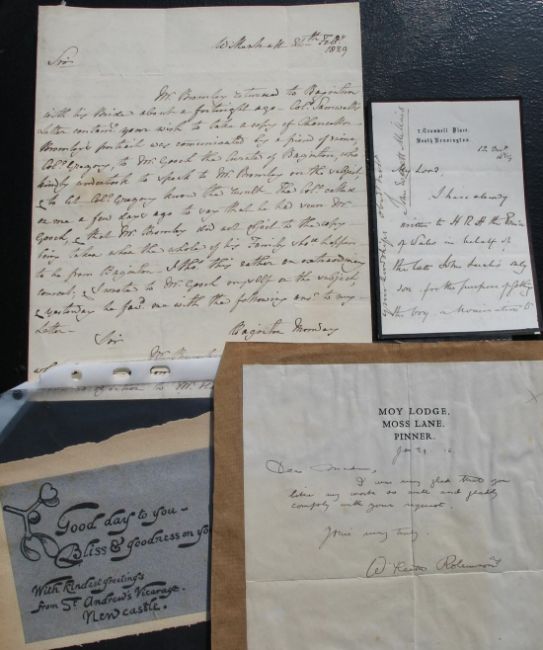 Sir
1829
Mr Bromley returned to Baginton
with his Bride about a fortnight ago - Col. Tamwells
Letter contain'd your wish to take a copy of Chancellor
Bromley's portrait was communicated by a friend of mine,
Col. Gregory, to Mr Gooch the Curate of Baginton, who
kindly undertook to speak to Mr Bromley on the subject
& to let Col. Gregory know the result. The Col. called
on me a few days ago to say that he had seen Mr
Gooch, & that Mr Bromley did not object to the copy
being taken when the whole of his Family
to be from Baginton - I tho' this rather an extraordinary
consent; & I wrote to Mr Gooch myself on the subject,
& yesterday he me with the following to my
Letter -
Baginton Monday
Sir
to Mr
7, Cromwell Place,
South Kensington.
12
My Lord,
I have already
written to H R H the Prince
of Wales in behalf of
the late John Leech's only
son for the purpose of getting
the boy a nomination to
Good day to you -
Bliss & goodness on yo
With kindest greetings
from St. Andrew's Vicarage.
Newcastle.
MOY LODGE,
MOSS LANE,
PINNER.
Dear Madam,
I am very glad that you
like my work so much and gladly
comply with your request.
Yours very truly
W Heath Robinson